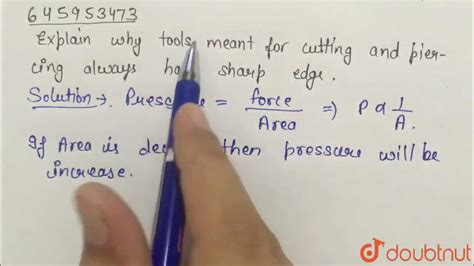 645953473
Explain why tools meant for cutting and pier-
cing always ha sharp edge.
Solution → Pres = force / Area ⇒ P α 1 / A.
If Area is dec then pressure will be
increase.
doubtnut